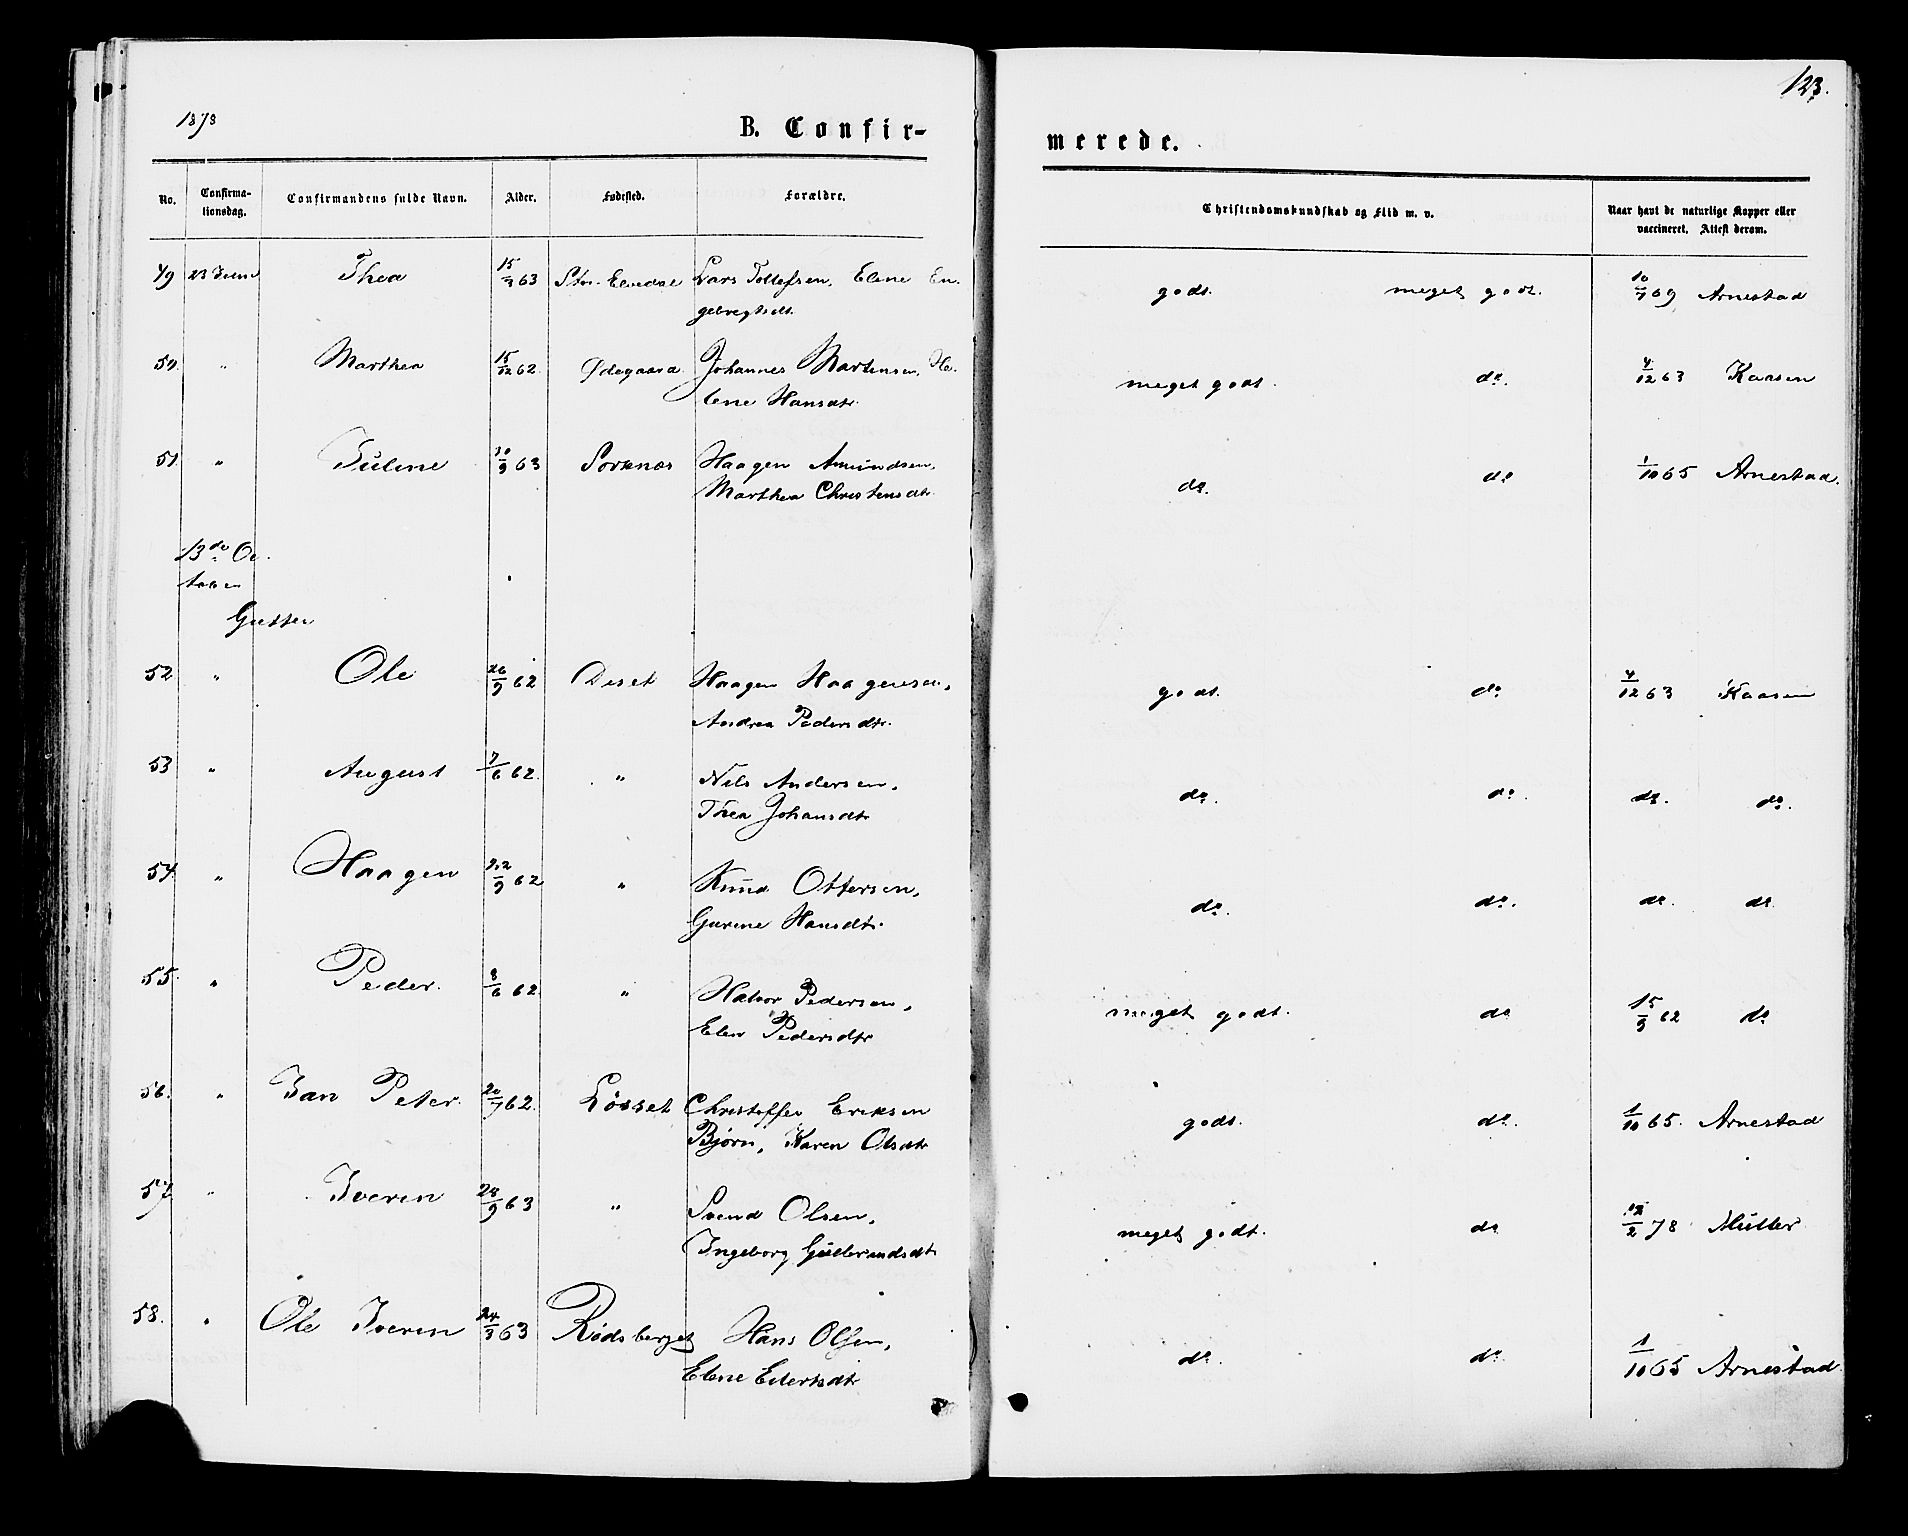 1878
B. Confir-
merede.
123.
No. Confirma-tionsdag. Confirmandens fulde Navn. Alder. Fødested. Forældre. Christendomskundskab og Flid m. v. Naar havt de naturlige Kopper eller vaccineret. Attest derom.
49 23 Juni Thea 15/3 63 Lars Tollefsen, Elene En- godt. meget godt. 10/7 69 Arnestad
gebregtsdt.
50 " Marthea 15/12 62. Ødegaard. Johannes Martinsen, He- meget godt. do. 4/12 63 Kaasen
lene Hansdtr.
51 " Juline 30/9 63 Sorknæs Haagen Amundsen, do. do 1/10 65 Arnestad.
Marthea Christensdtr.
13de Oc-
tober
Gutter
52 " Ole 26/9 62 Deset Haagen Haagensen, godt. do 4/12 63 Kaasen
Andrea Pedersdtr.
53 " August 7/6 62. " Nils Andersen, do. do. do. do.
Thea Johansdtr
54. " Haagen 22/9 62 " Knud Ottersen, do. do. do. do
Gurine Hansdtr.
55. " Peder. 8/6 62 " Halvor Pedersen, meget godt. do 15/9 62 do
Elen Pedersdtr
56. " Jan Peter. 20/7 62. Løsset Christoffer Eriksen godt. do. 1/10 65. Arnestad
Bjørn, Karen Olsdtr
57 " Iveren 28/9 63 " Svend Olsen, meget godt. do 12/2 78 Müller
Ingeborg Gulbrandsdtr
58. " Ole Iveren 24/3 63 Rødsberget Hans Olsen, do. do. 1/10 65 Arnestad.
Elene Eilertsdtr